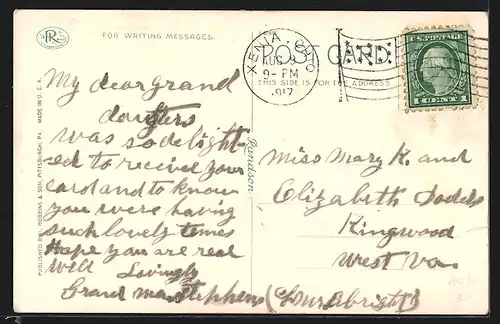 FOR WRITING MESSAGES.
POST CARD.
THIS SIDE IS FOR THE ADDRESS
XENIA, OHIO
AUG 9
9-PM
1917
U.S. POSTAGE
1 CENT 1
PUBLISHED BY I. ROBBINS & SON, PITTSBURGH, PA. MADE IN U. S. A.
My dear grand
daughters
was so delight-
ed to receive your
card and to know
you were having
such lovely times
Hope you are real
well Lovingly
Grand ma Stephens
Miss Mary K. and
Elizabeth Dodds
Kingwood
West Va.